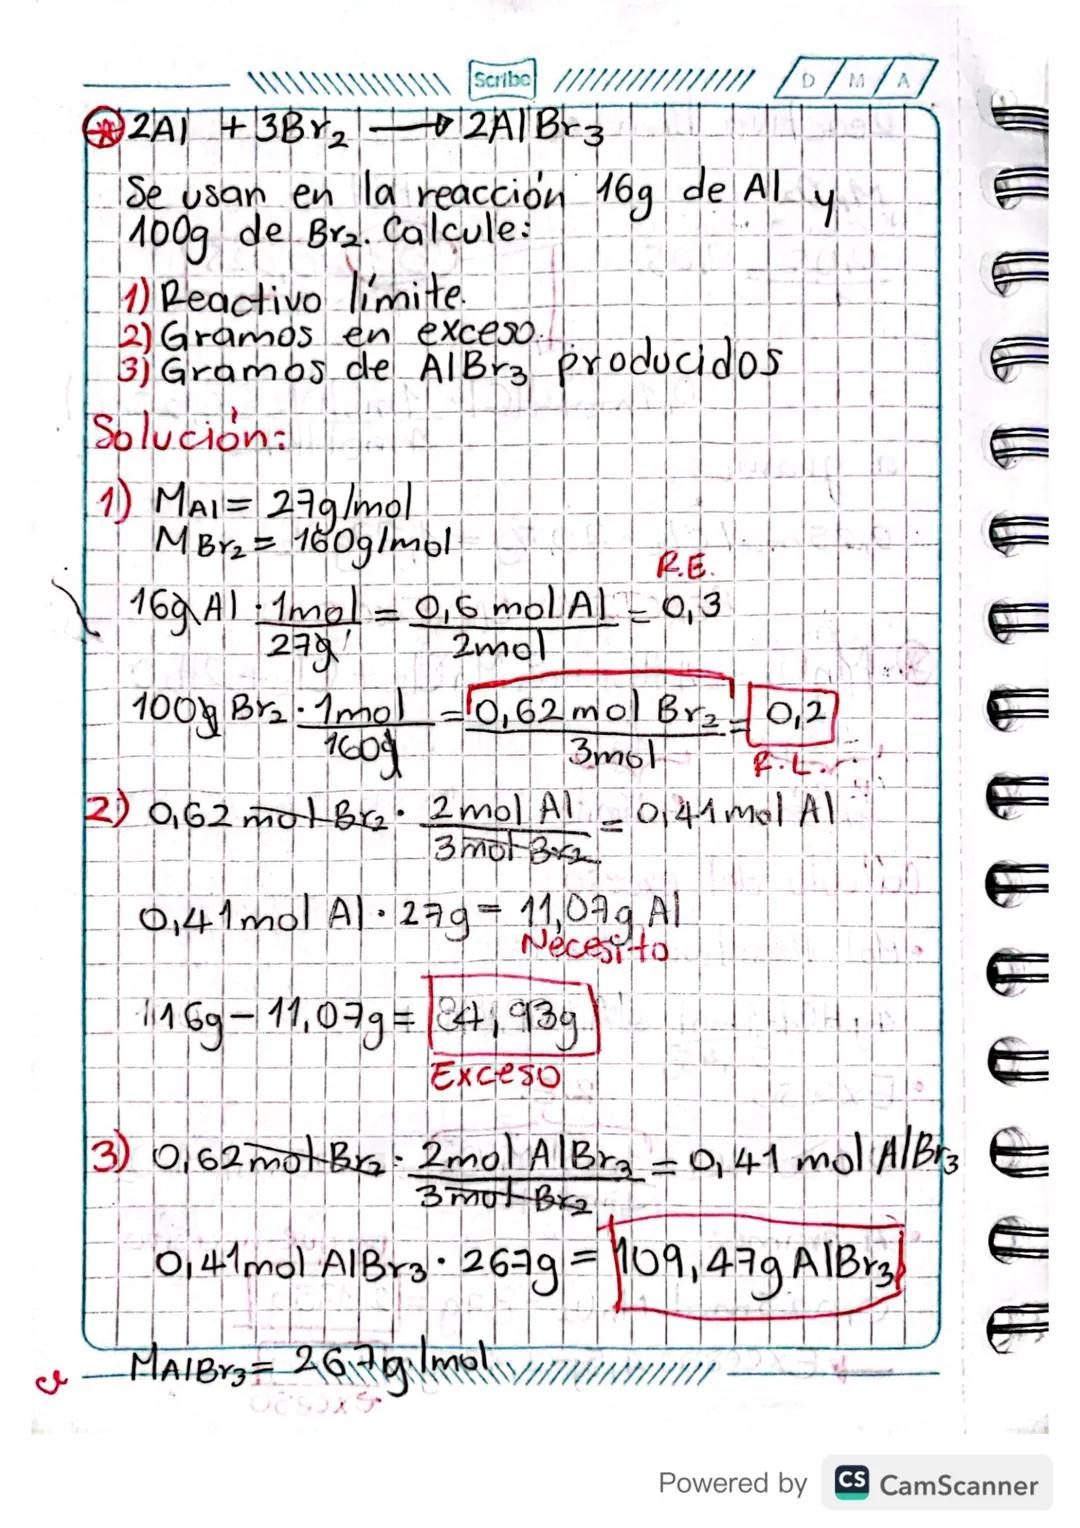 Scribe D / M / A
2Al + 3Br₂ → 2AlBr₃
Se usan en la reacción 16g de Al y
100g de Br₂. Calcule:
1) Reactivo límite.
2) Gramos en exceso.
3) Gramos de AlBr₃ producidos
Solución:
1) MAl = 27g/mol
MBr₂ = 160g/mol
R.E.
16g Al · 1mol = 0,6 mol Al = 0,3
27g 2mol
100g Br₂ · 1mol = 0,62 mol Br₂ = 0,2
160g 3mol R.L.
2) 0,62 mol Br₂ · 2 mol Al = 0,41 mol Al
3 mol Br₂
0,41 mol Al · 27g = 11,07g Al
Necesito
16g - 11,07g = 4,93g
Exceso
3) 0,62 mol Br₂ · 2mol AlBr₃ = 0,41 mol AlBr₃
3 mol Br₂
0,41 mol AlBr₃ · 267g = 109,47g AlBr₃
MAlBr₃ = 267g/mol
Powered by CS CamScanner